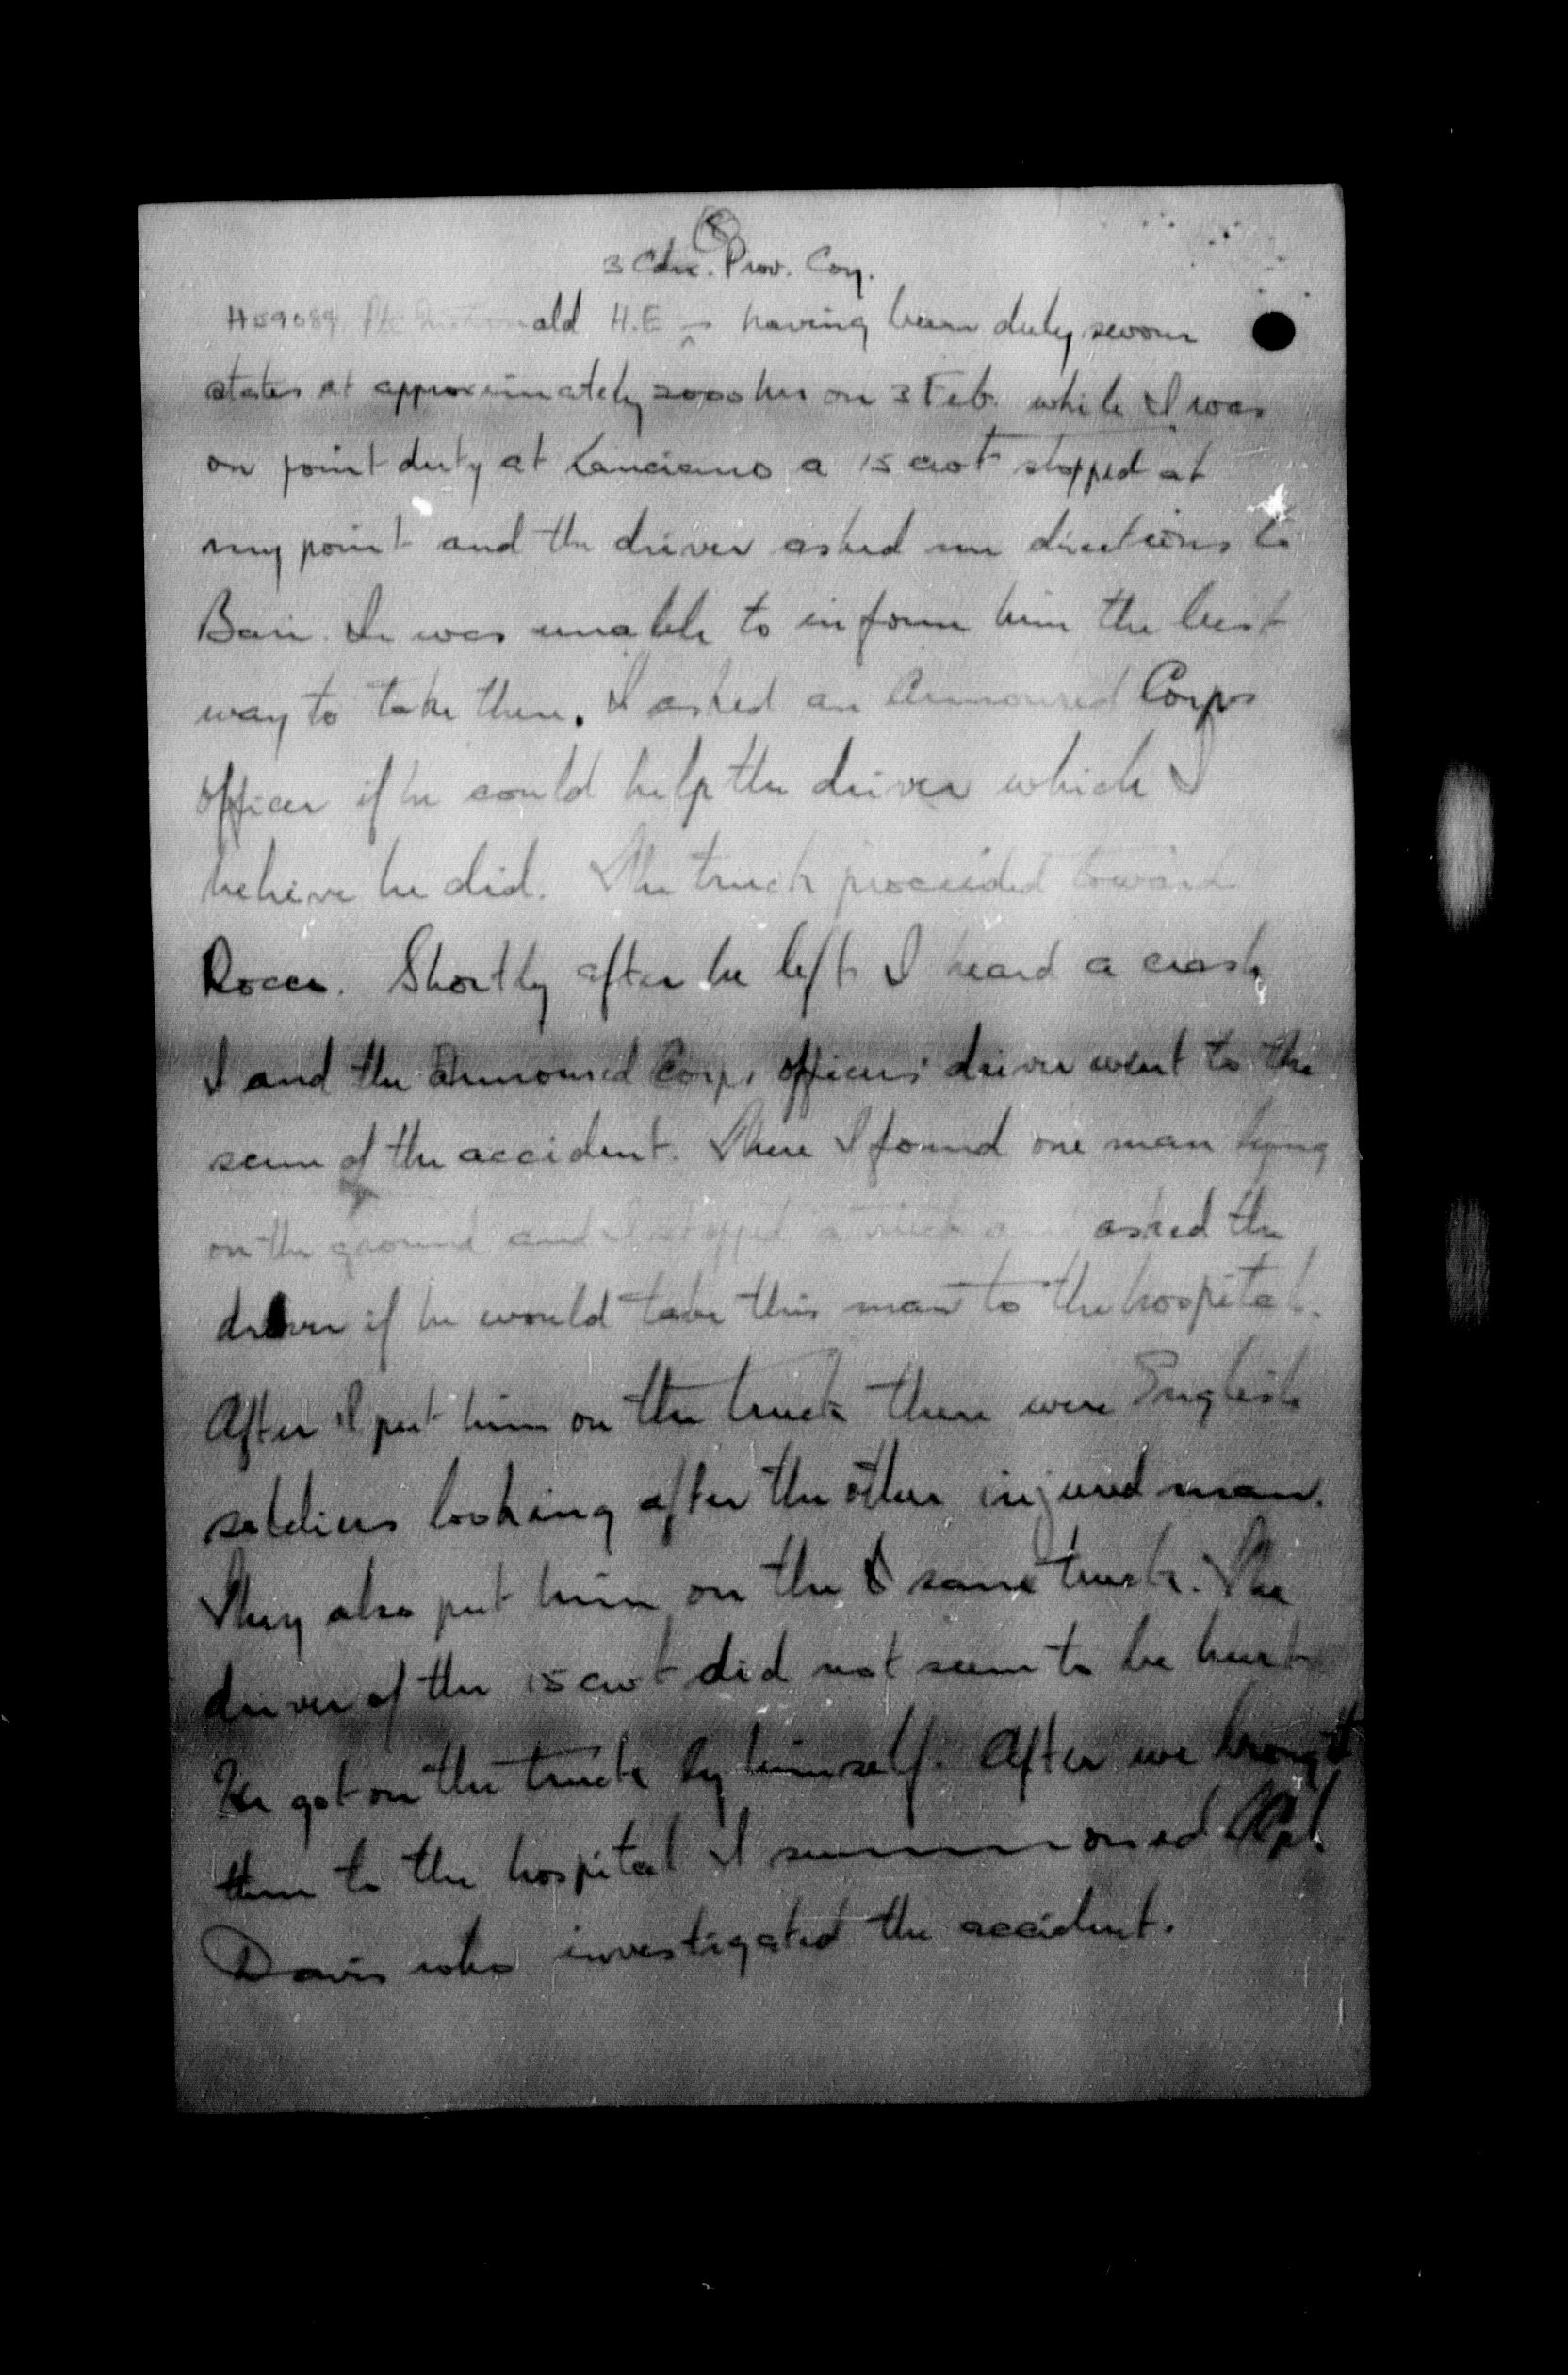 (8)
3 Cdn. Prov. Coy.
H59089 Pte ald H.E having been duly sworn
states at approximately 2000 hrs on 3 Feb. while I was
on point duty at Lanciano a 15 cwt stopped at
my point and the driver asked me directions to
Bari. I was unable to inform him the best
way to take then. I asked an Armoured Corps
officer if he could help the driver which I
believe he did. The truck proceeded towards
Rocca. Shortly after he left I heard a crash
I and the Armoured Corps officers driver went to the
scene of the accident. There I found one man lying
on the ground and I stopped a truck and asked the
driver if he would take this man to the hospital.
After I put him on the truck there were English
soldiers looking after the other injured man.
They also put him on the same truck. The
driver of the 15 cwt did not seem to be hurt
He got on the truck by himself. After we brought
them to the hospital I summonsed Cpl.
Davis who investigated the accident.